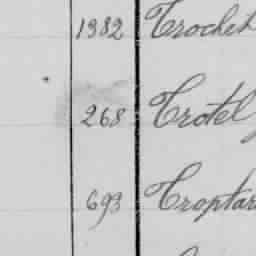 1982 Trochet
268 Trotel
693 Troptar